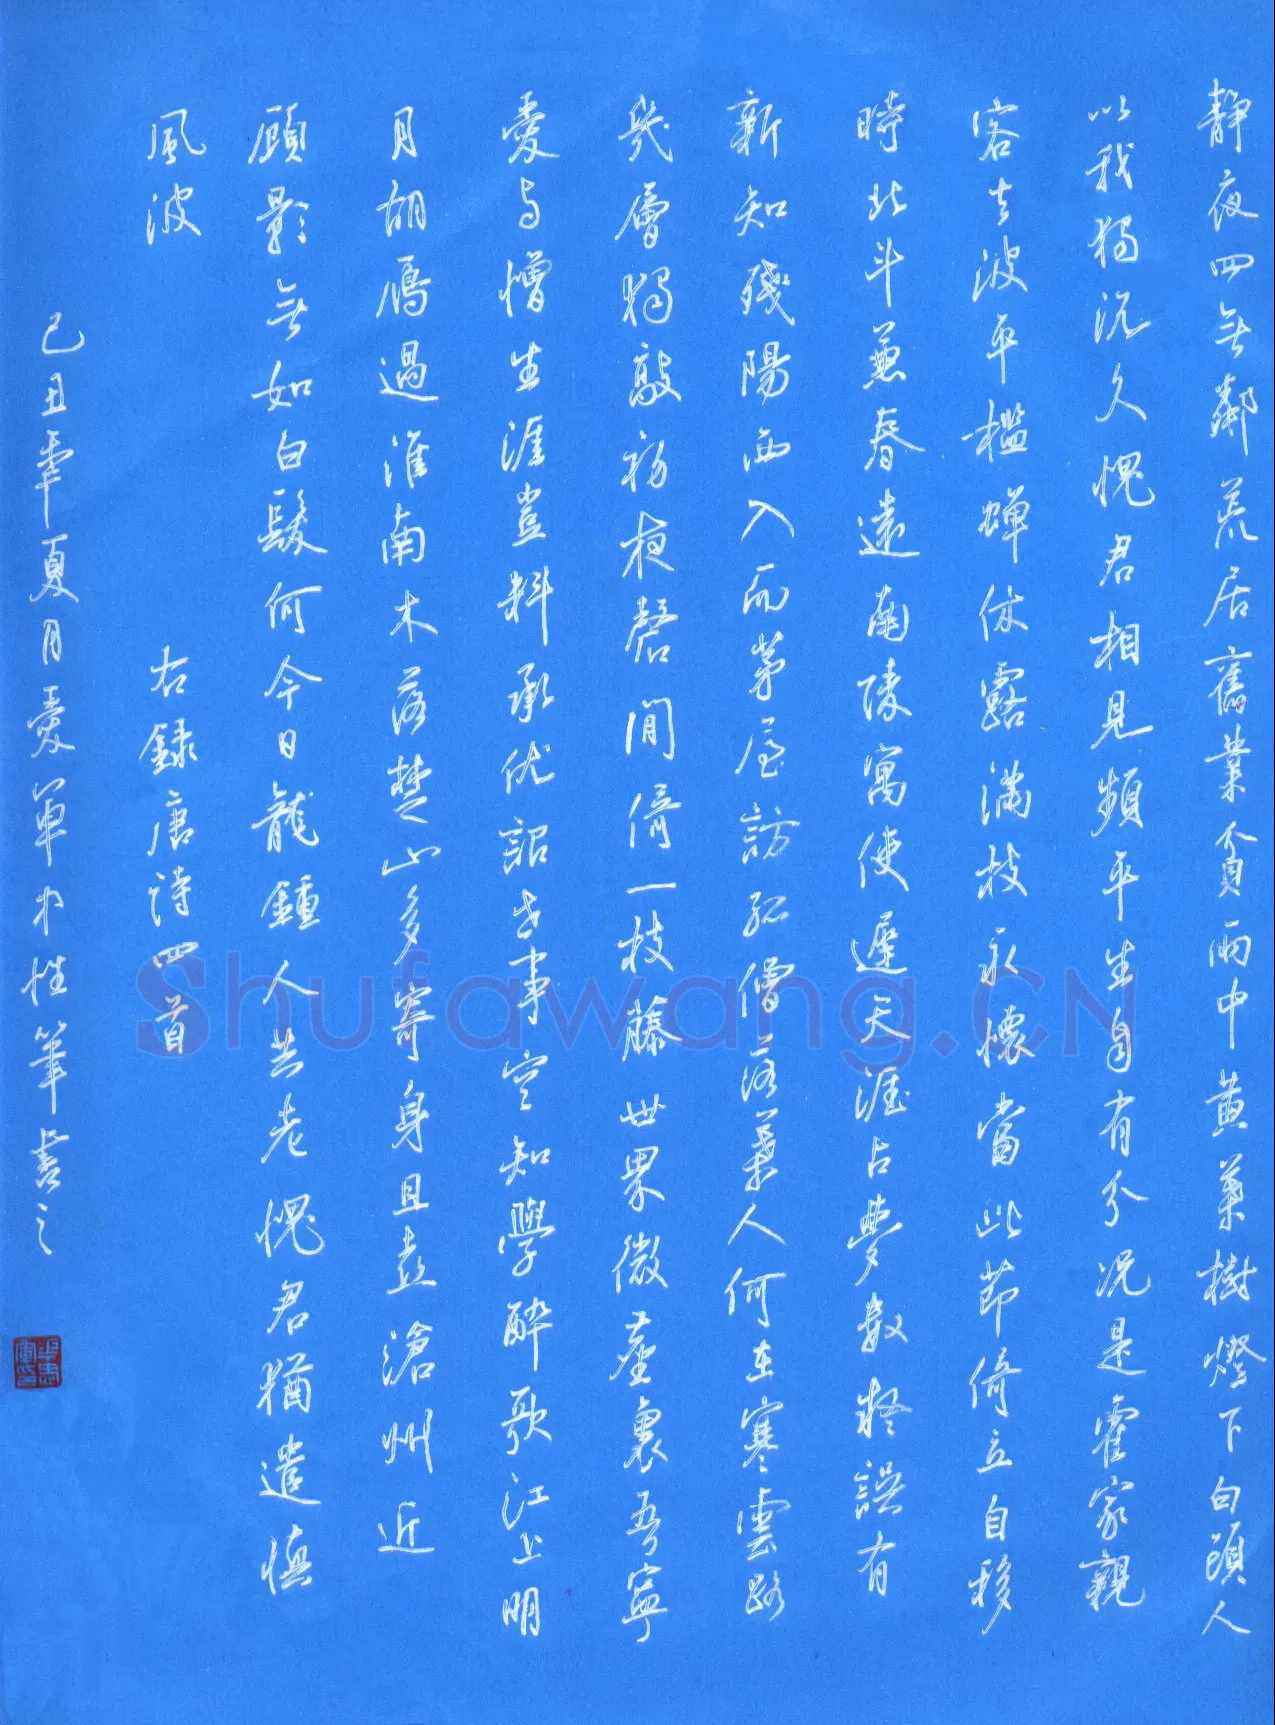 静夜四無鄰荒居舊業貧雨中黃葉樹燈下白頭人
以我獨沉久愧君相見頻平生自有分况是霍家親
客去波平檻蟬休露滿枝永懷當此節倚立自移
時北斗兼春遠南陵寓使遲天涯占夢數疑誤有
新知殘陽西入而茅屋訪孤僧落葉人何在寒雲路
幾層獨敲初夜磬閒倚一枝藤世界微塵裏吾寧
愛与憎生涯豈料承優詔世事空知學醉歌江上明
月胡鴈過淮南木落楚山多寄身且喜滄州近
顧影無如白髮何今日龍鍾人共老愧君猶遣慎
風波
右録唐诗四首
己丑年夏月愛軍中性筆書之
Shufawang.CN